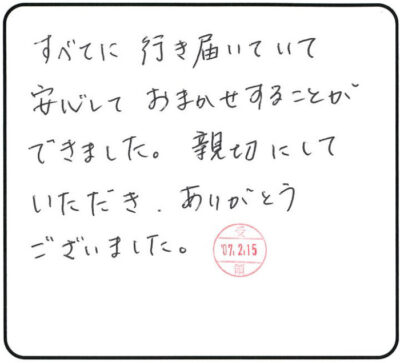 すべてに 行き届いていて
安心して おまかせすることが
できました。 親切にして
いただき、ありがとう
ございました。
受
'07.2.15
領